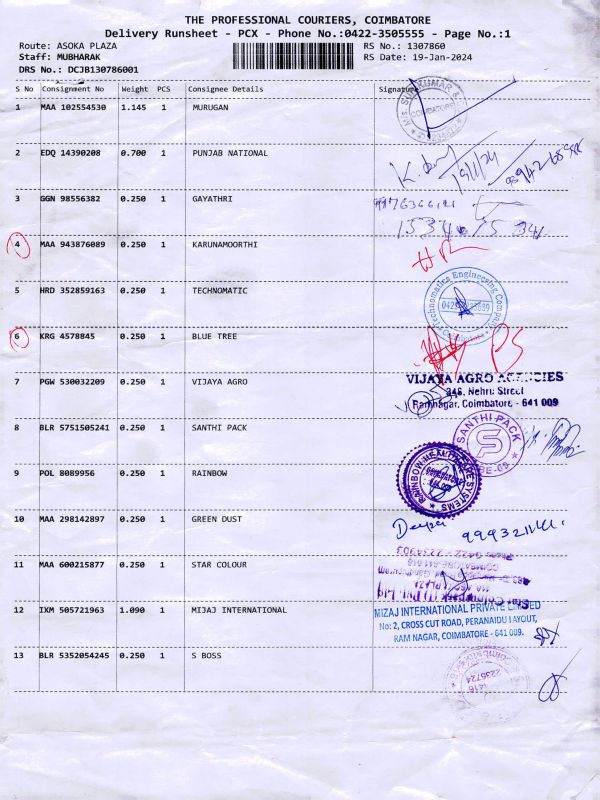 THE PROFESSIONAL COURIERS, COIMBATORE
Delivery Runsheet - PCX - Phone No.:0422-3505555 - Page No.:1
Route: ASOKA PLAZA RS No.: 1307860
Staff: MUBHARAK RS Date: 19-Jan-2024
DRS No.: DCJB130786001
S No Consignment No Weight PCS Consignee Details Signature
1 MAA 102554530 1.145 1 MURUGAN
COIMBATORE
2 EDQ 14390208 0.700 1 PUNJAB NATIONAL
19/1/24
3 GGN 98556382 0.250 1 GAYATHRI
4 MAA 943876089 0.250 1 KARUNAMOORTHI
5 HRD 352859163 0.250 1 TECHNOMATIC
Technomatics Engineering Company
Coimbatore
6 KRG 4578845 0.250 1 BLUE TREE
7 PGW 530032209 0.250 1 VIJAYA AGRO
VIJAYA AGRO AGENCIES
346, Nehru Street
Ramnagar, Coimbatore - 641 009
8 BLR 5751505241 0.250 1 SANTHI PACK
SANTHI PACK
9 POL 8089956 0.250 1 RAINBOW
RAINBOW HEALTHCARE SYSTEMS
10 MAA 298142897 0.250 1 GREEN DUST
Deepa
11 MAA 600215877 0.250 1 STAR COLOUR
Phone 0422 - 2234903
12 IXM 505721963 1.090 1 MIJAJ INTERNATIONAL
MIZAJ INTERNATIONAL PRIVATE LIMITED
No: 2, CROSS CUT ROAD, PERANAIDU LAYOUT,
RAM NAGAR, COIMBATORE - 641 009.
13 BLR 5352054245 0.250 1 S BOSS
2235724